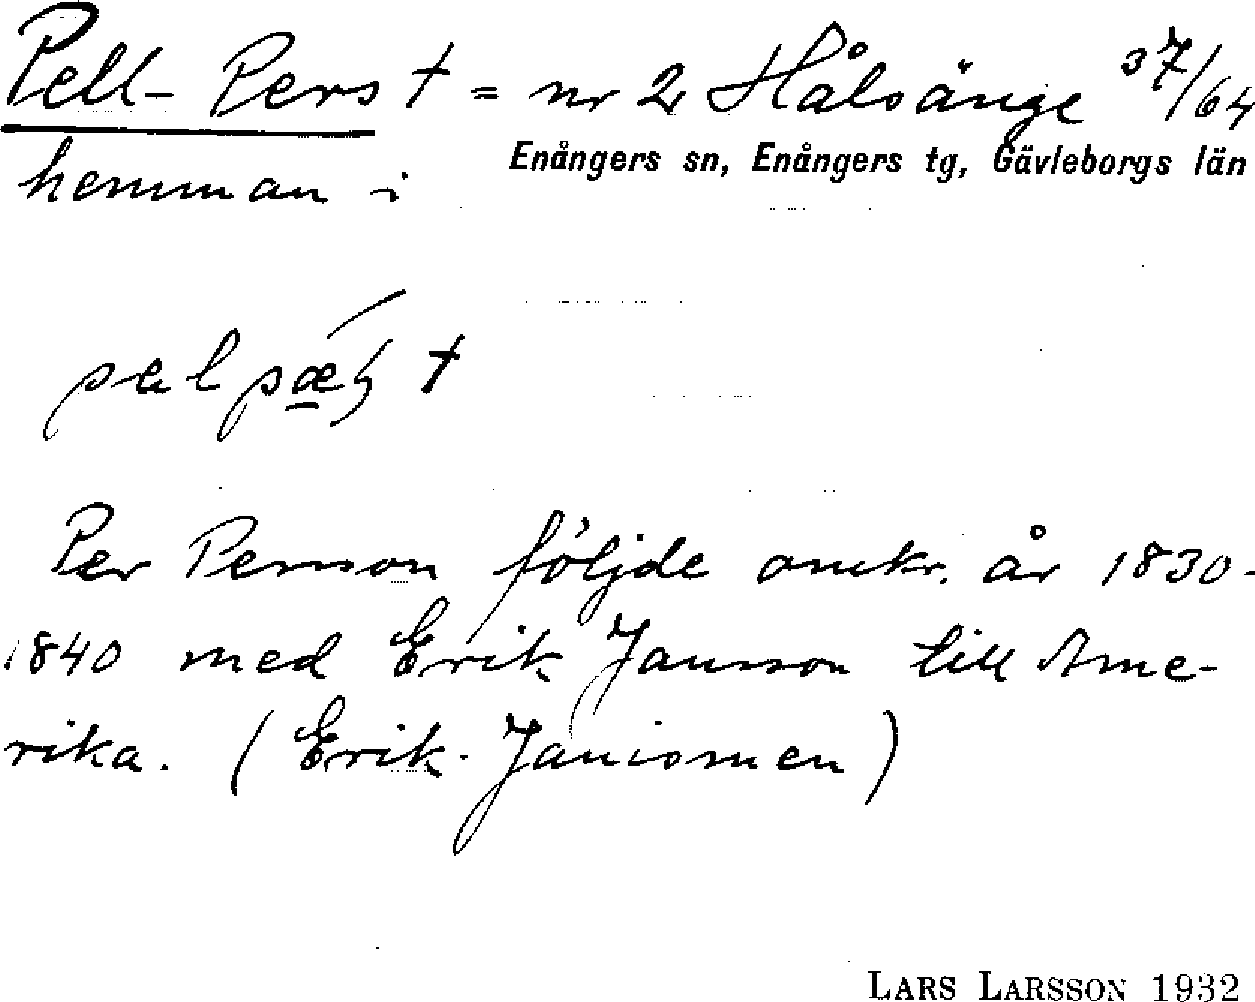 Pell-Pers † = nr 2 Hålsänge 37/64
hemman i Enångers sn, Enångers tg, Gävleborgs län
pel pæ̲ʂ †
Per Person följde omkr. år 1830-
1840 med Erik Jansson till Ame-
rika. (Erik-Jansismen)
LARS LARSSON 1932